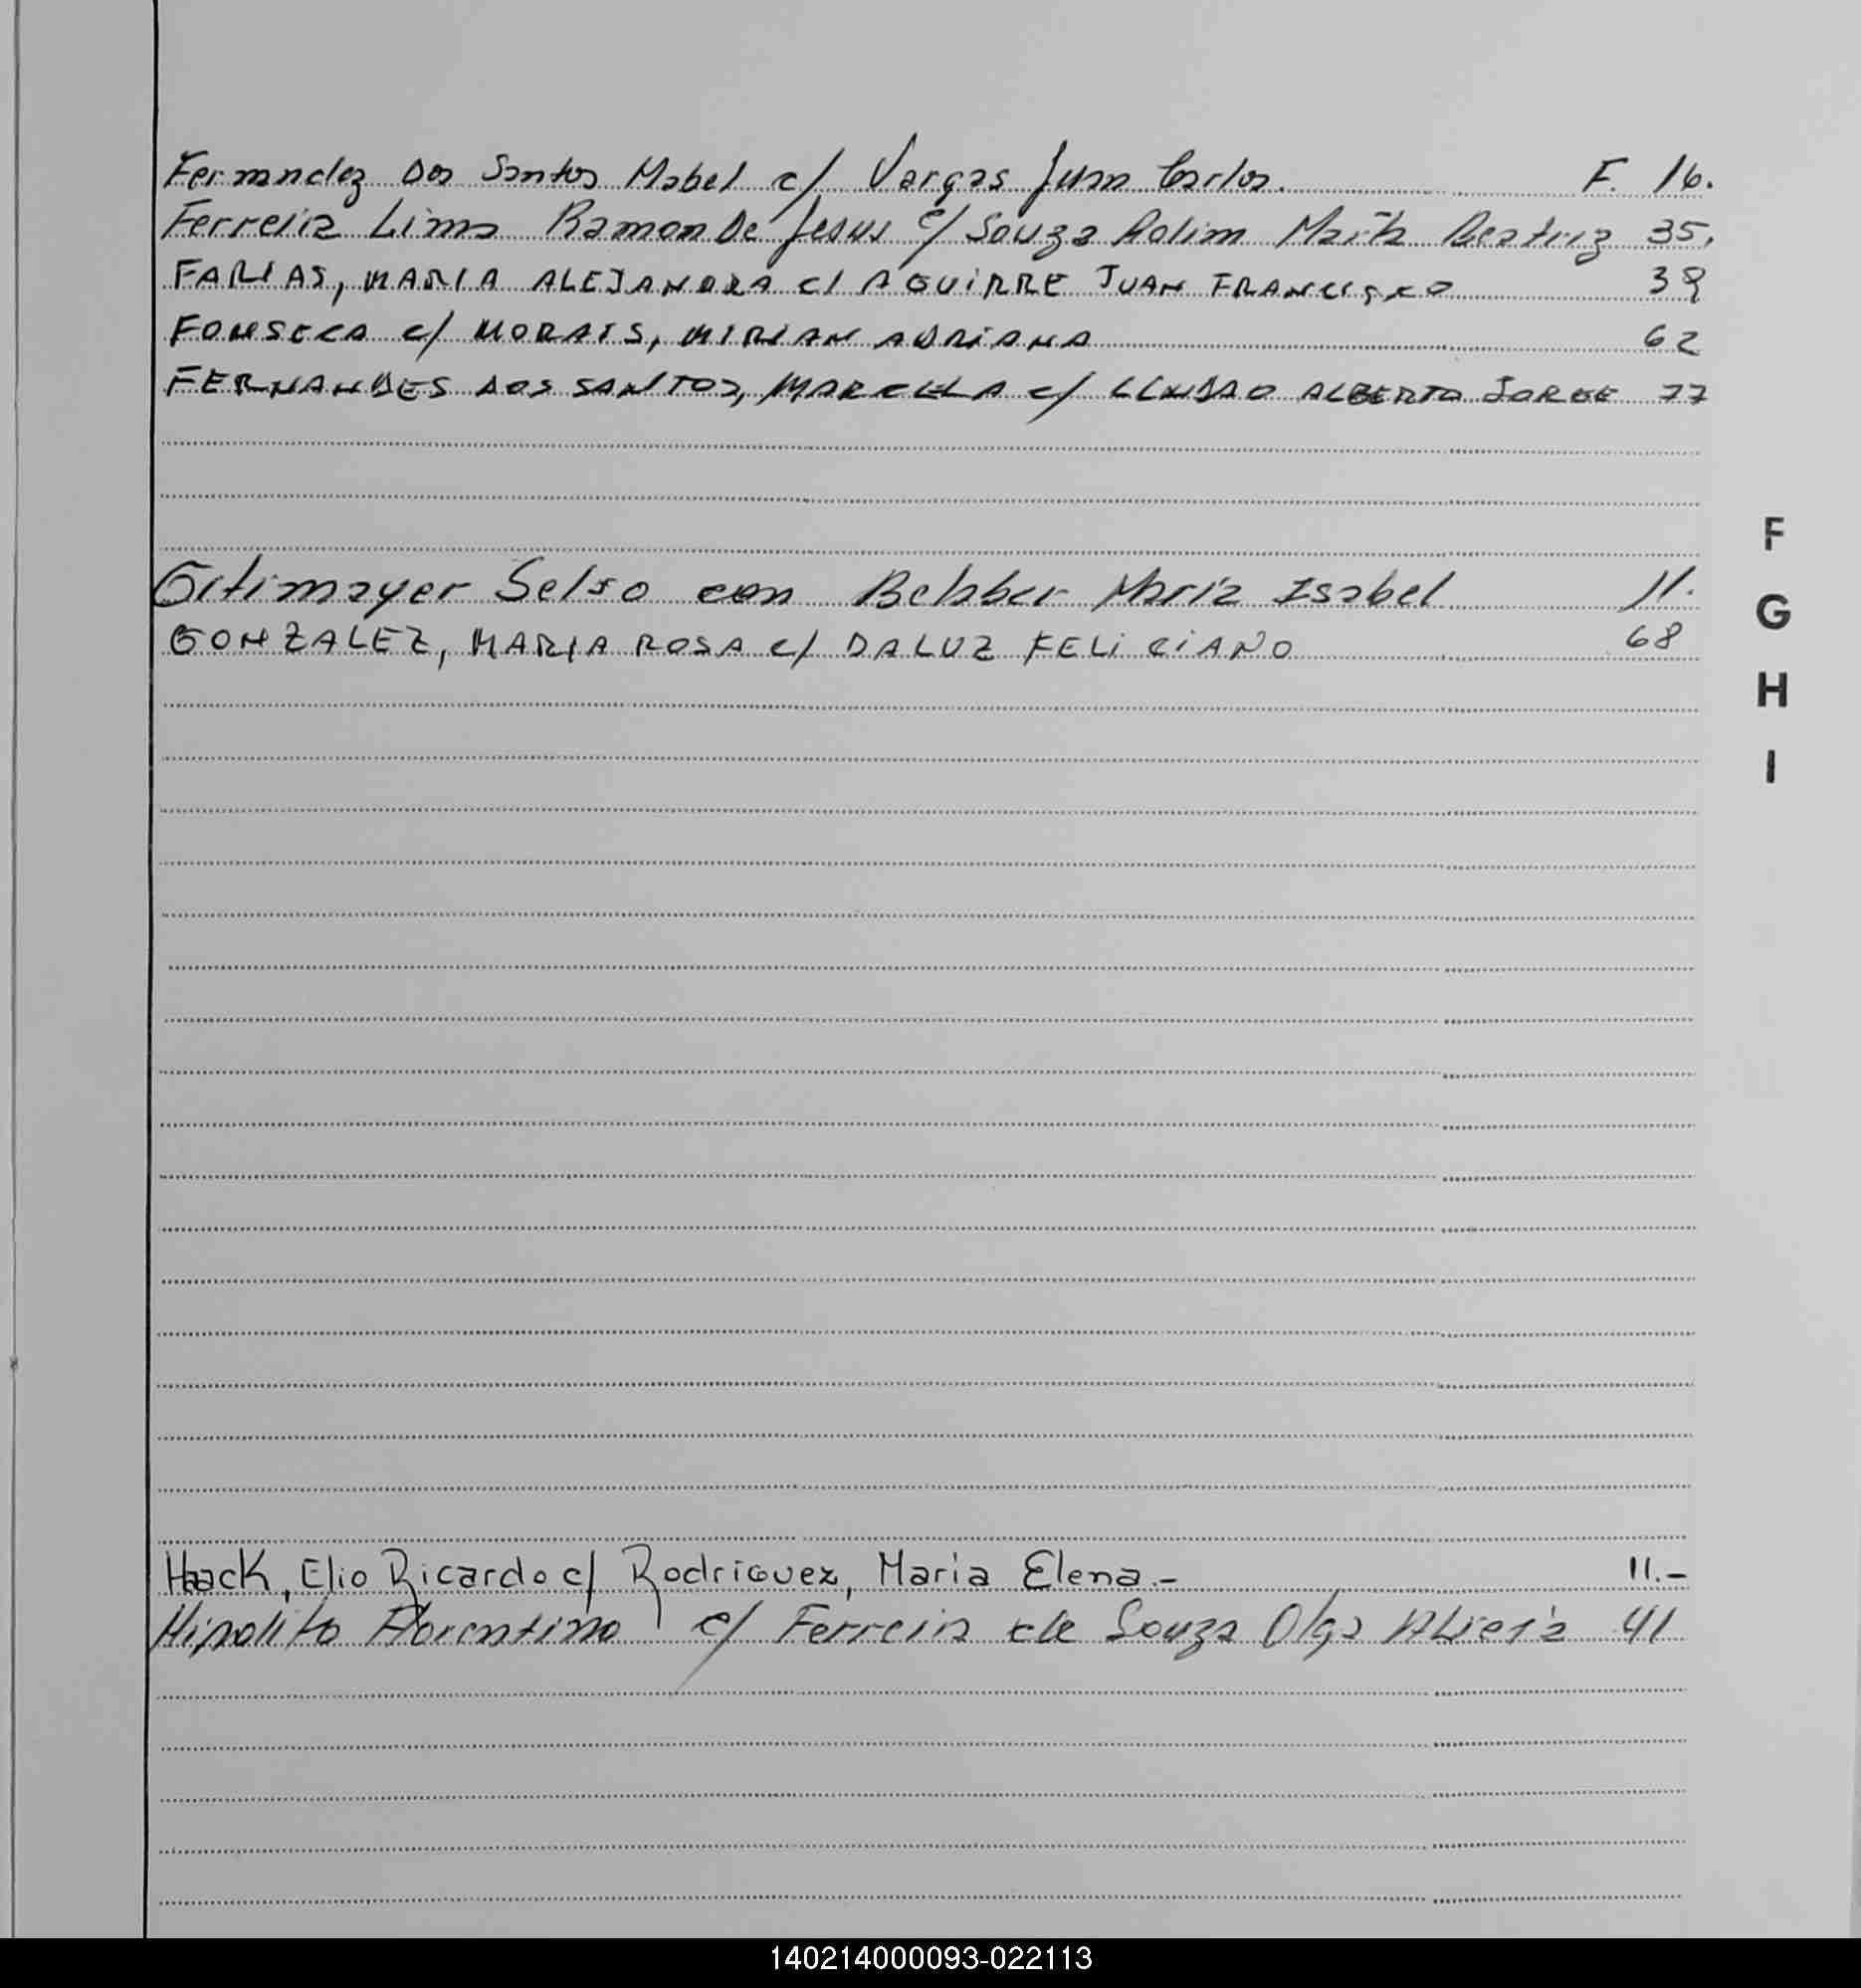 Fernandez Dos Santos Mabel c/ Vargas Juan Carlos. F. 16.
Ferreira Lima Ramon De Jesus c/ Souza Rolim Marta Beatriz 35.
FARIAS, MARIA ALEJANDRA c/ AGUIRRE JUAN FRANCISCO 39
FONSECA c/ MORAIS, MIRIAN ADRIANA 62
FERNANDES DOS SANTOS, MARCELA c/ ALBERTO JORGE 77
F
G
H
I
Gitimayer Selso con Maria Isabel 11.
GONZALEZ, MARIA ROSA c/ DALUZ FELICIANO 68
Haack, Elio Ricardo c/ Rodriguez, Maria Elena.- 11.-
Hipolito Florentino c/ Ferreira de Souza Olga 41
140214000093-022113